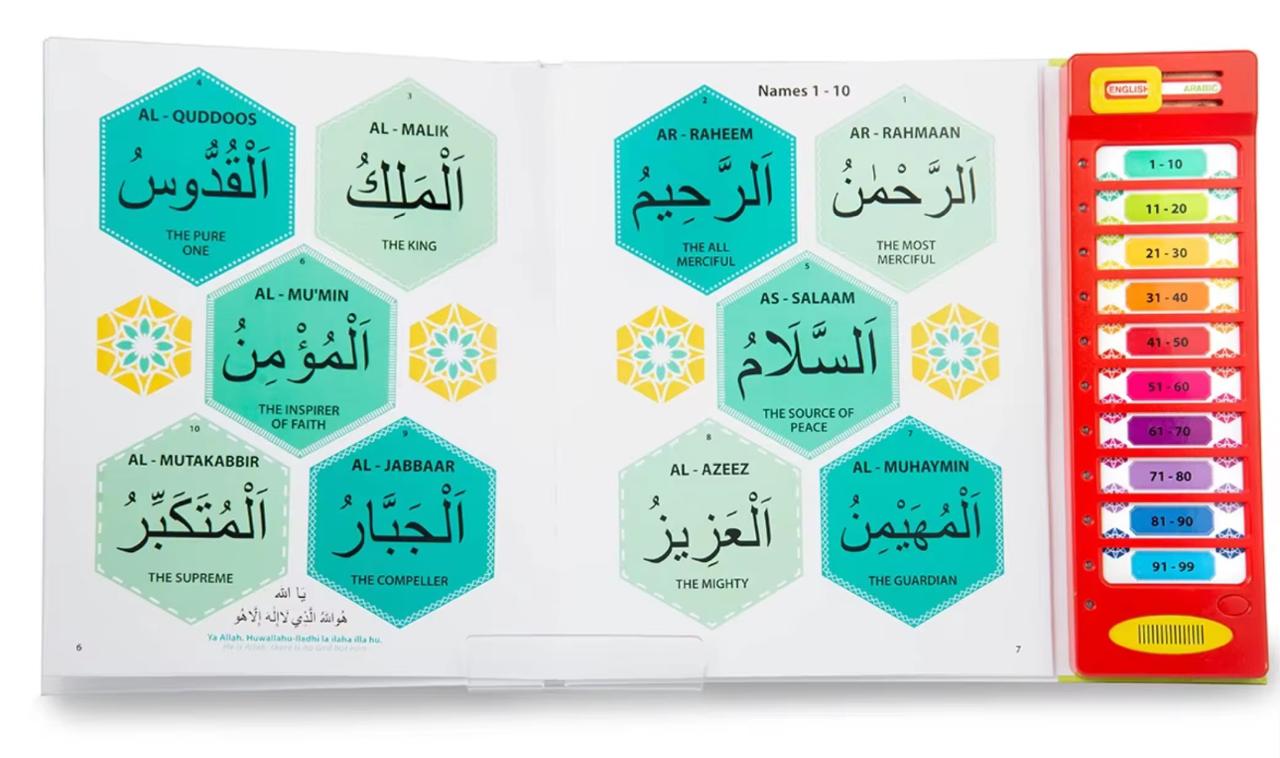 Names 1 - 10
1
AR - RAHMAAN
اَلرَّحْمٰنُ
THE MOST
MERCIFUL
2
AR - RAHEEM
اَلرَّحِيمُ
THE ALL
MERCIFUL
5
AS - SALAAM
اَلسَّلَامُ
THE SOURCE OF
PEACE
7
AL - MUHAYMIN
اَلْمُهَيْمِنُ
THE GUARDIAN
8
AL - AZEEZ
اَلْعَزِيزُ
THE MIGHTY
7
3
AL - MALIK
اَلْمَلِكُ
THE KING
4
AL - QUDDOOS
اَلْقُدُّوسُ
THE PURE
ONE
6
AL - MU'MIN
اَلْمُؤْمِنُ
THE INSPIRER
OF FAITH
9
AL - JABBAAR
اَلْجَبَّارُ
THE COMPELLER
10
AL - MUTAKABBIR
اَلْمُتَكَبِّرُ
THE SUPREME
يَا الله
هُوَاللهُ الَّذِي لَاإِلٰهَ إِلَّاهُو
Ya Allah. Huwallahu-lladhi la ilaha illa hu.
He is Allah, there is no God but Him
6
ENGLISH
ARABIC
1 - 10
11 - 20
21 - 30
31 - 40
41 - 50
51 - 60
61 - 70
71 - 80
81 - 90
91 - 99